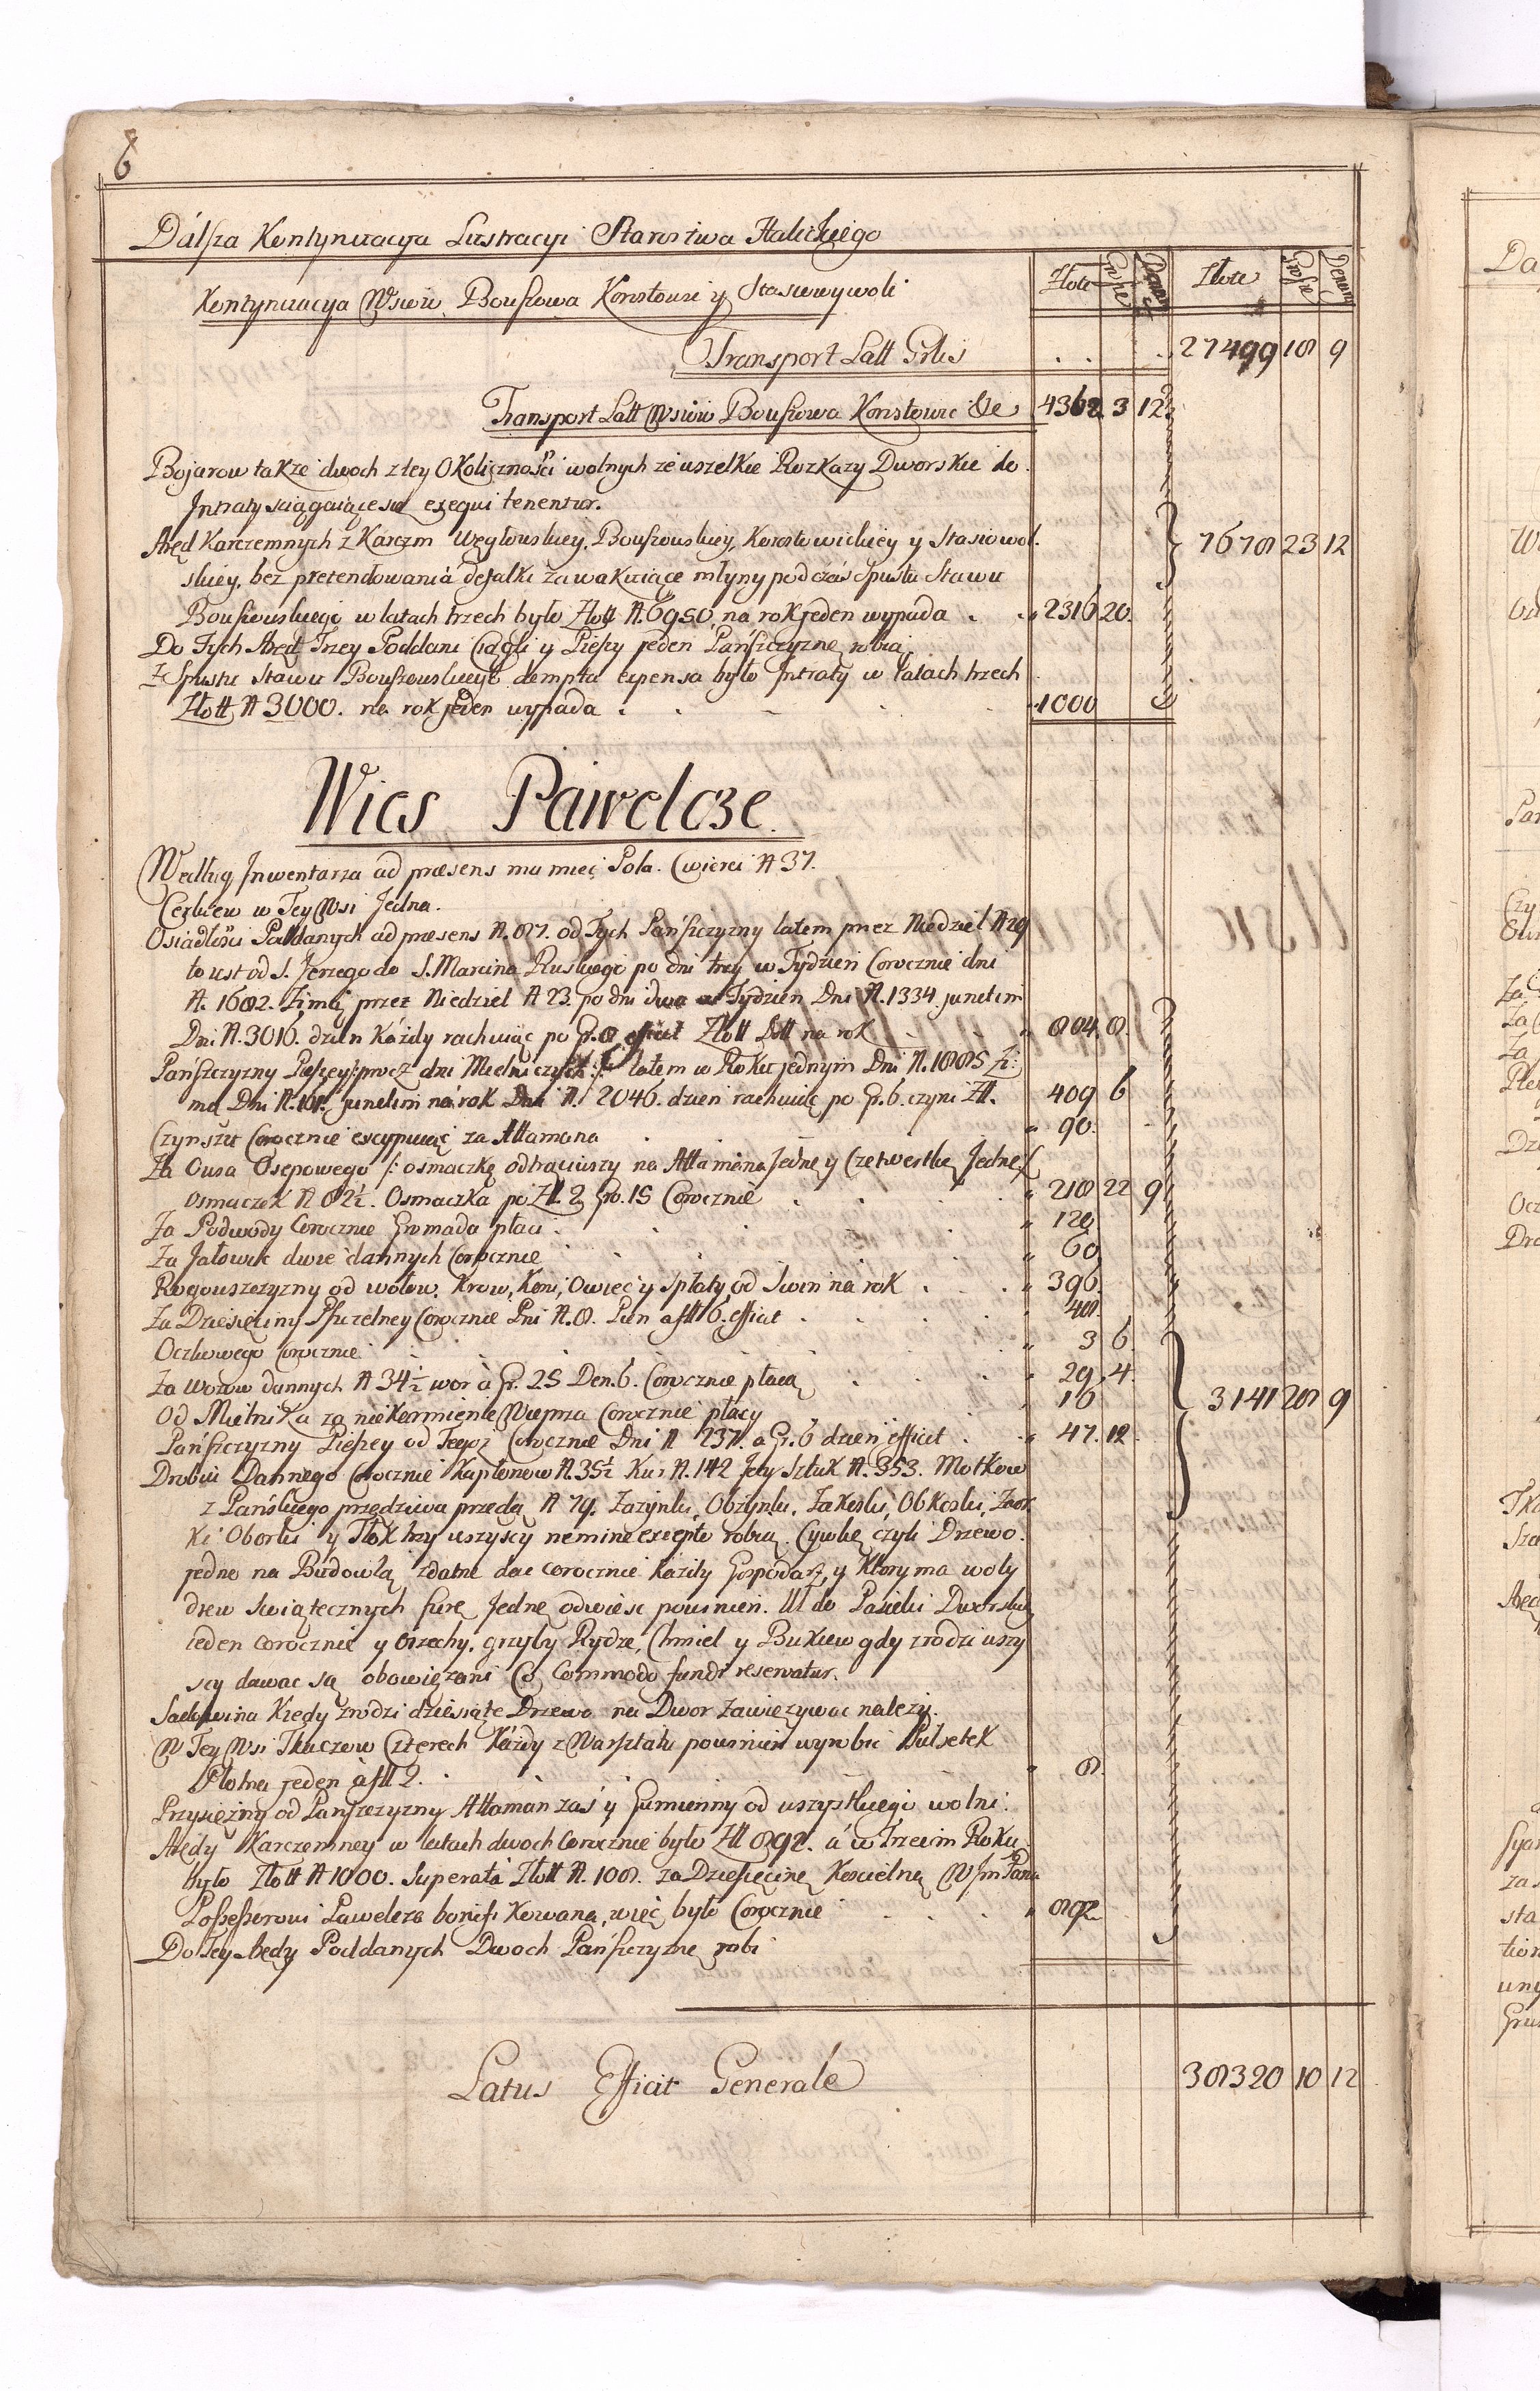 6
Dálsza Kontynuacya Lustracyi Starostwa Halickiego
Kontynuacya Wsiow Bouszowa Konstowic y Stasiowywoli
Złote Grosze Denary Złote Grosze Denary
Transport Latt Grlis . . . 27499 18 9
Transport Latt Wsiow Bouszowa Konstowic &c 4362 3 12
Bojarow także dwoch z tey Okoliczności wolnych ze wszelkie Rozkazy Dworskie do
Intraty sciągaiące się exequi tenentur.
Aręd Karczemnych z Karczm Węgłowskiey, Bouszowskiey, Korostowickiey y Stasiowol 7678 23 12
skiey, bez pretendowaniá defalki za wakuiące młyny podczas Spustu Stawu
Bouszowskiego w latach trzech było Złott N. 6950 na rok jeden wypada . 2316 20
Do Tych Aręd Trzey Poddani Ciągli y Pieszy jeden Pańszczyznę robią
Z Spustu Stawu Bouszowskiego dempta expensa było Intraty w latach trzech
Złott N 3000. na rok jeden wypada . . 1000
Wies Pawelcze.
Według Inwentarza ad præsens ma mieć Pola. Cwierci N 37.
Cerkiew w Tey Wsi Jedna.
Osiadłości Poddanych ad præsens N. 87. od Tych Pańszczyzny latem przez Niedziel N 29
to iest od S. Jerzego do S. Marcina Ruskiego po dni trzy w Tydzien Corocznie dni
N. 1682. Zimą przez Niedziel N 23. po dni dwa w Tydzien Dni N. 1334. junctim
Dni N. 3016. dzien káżdy rachuiąc po Gr. 8 efficit Złott Pott na rok 804. 8.
Pańszczyzny Pieszey /: procz dni Mielniczych :/ latem w Roku jednym Dni N. 1885 Zi:
mą Dni N. 161. junctim ná rok Dni N. 2046. dzien rachuiąc po Gr. 6. czyni Zł. 409 6
Czynszu Corocznie excypuiąc za Attamana . 90.
Za Owsa Osepowego /: osmaczkę odtrąciwszy na Attamana Jednę y Czetwertkę Jednę :/
osmaczek N 82½. Osmaczka po Zł. 2 Gr. 15 Corocznie 218 22 9
Za Podwody Corocznie Gromada płaci . 120
Za Jałowic dwie dannych Corocznie 60
Rogowszczyzny od wołow, Krow, Koni, Owiec y Spłaty od Swin na rok . . 396.
Za Dziesięciny Pszczelney Corocznie Pni N. 8. Pień a fll 6. efficit . 48.
Oczkowego Corocznie . 3 6.
Za Worow dannych N 34½ wor a Gr. 25 Den. 6. Corocznie płacą . 29 4.
Od Mielnika za nie Karmienie Wieprza Corocznie płacy 16 3141 28 9
Pańszczyzny Pieszey od Tegoż Corocznie Dni N 237. a Gr. 6 dzień efficit . 47. 12
Drobiu Dannego Corocznie Kapłonow N. 35½ Kur N. 142 Jay Sztuk N. 353. Motkow
z Pańskiego przędziwa przędą N 79. Zażynki, Obżynki, Zakoski, Obkoski, Zaor
ki Oborki y Tłok trzy wszyscy nemine excepto robią. Cywkę czyli Drzewo
jedno na Budowlą zdatne dać corocznie każdy Gospodarz, y Ktory ma woły
drew Swiątecznych furę Jednę odwieść powinien. Ul do Pasieki Dworskiey
ieden corocznie y Orzechy, grzyby Rydze, Chmiel y Bukiew gdy zrodzi wszy
scy dawać są obowiązani Co Commodo fundi reservatur.
Sadowina Kiedy zrodzi dziesiąte Drzewo na Dwor zawięzywać należy.
W Tey Wsi Tkaczow Czterech Każdy z Warsztatu powinien wyrobić Pułsetek
Płotna jeden a fll 2. . 8.
Przysiężny od Pańszczyzny Attaman zaś y Gumienny od wszystkiego wolni.
Arędy Karczemney w latach dwoch Corocznie było Zll 892. á w Trzecim Roku
było Złott N 1000. Superata Złott N. 108. za Dziesięcinę Koscielną WJm Panu
Possessorowi Pawelcza bonifikowana, więc było Corocznie 892
Do Tey Arędy Poddanych Dwoch Pańszczyznę robi
Latus Efficit Generale 38320 10 12